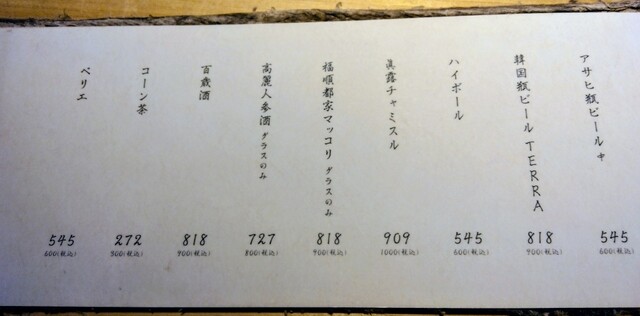 アサヒ瓶ビール中
545
600(税込)
韓国瓶ビール TERRA
818
900(税込)
ハイボール
545
600(税込)
眞露チャミスル
909
1000(税込)
福順都家マッコリ グラスのみ
818
900(税込)
高麗人参酒 グラスのみ
727
800(税込)
百歳酒
818
900(税込)
コーン茶
272
300(税込)
ペリエ
545
600(税込)